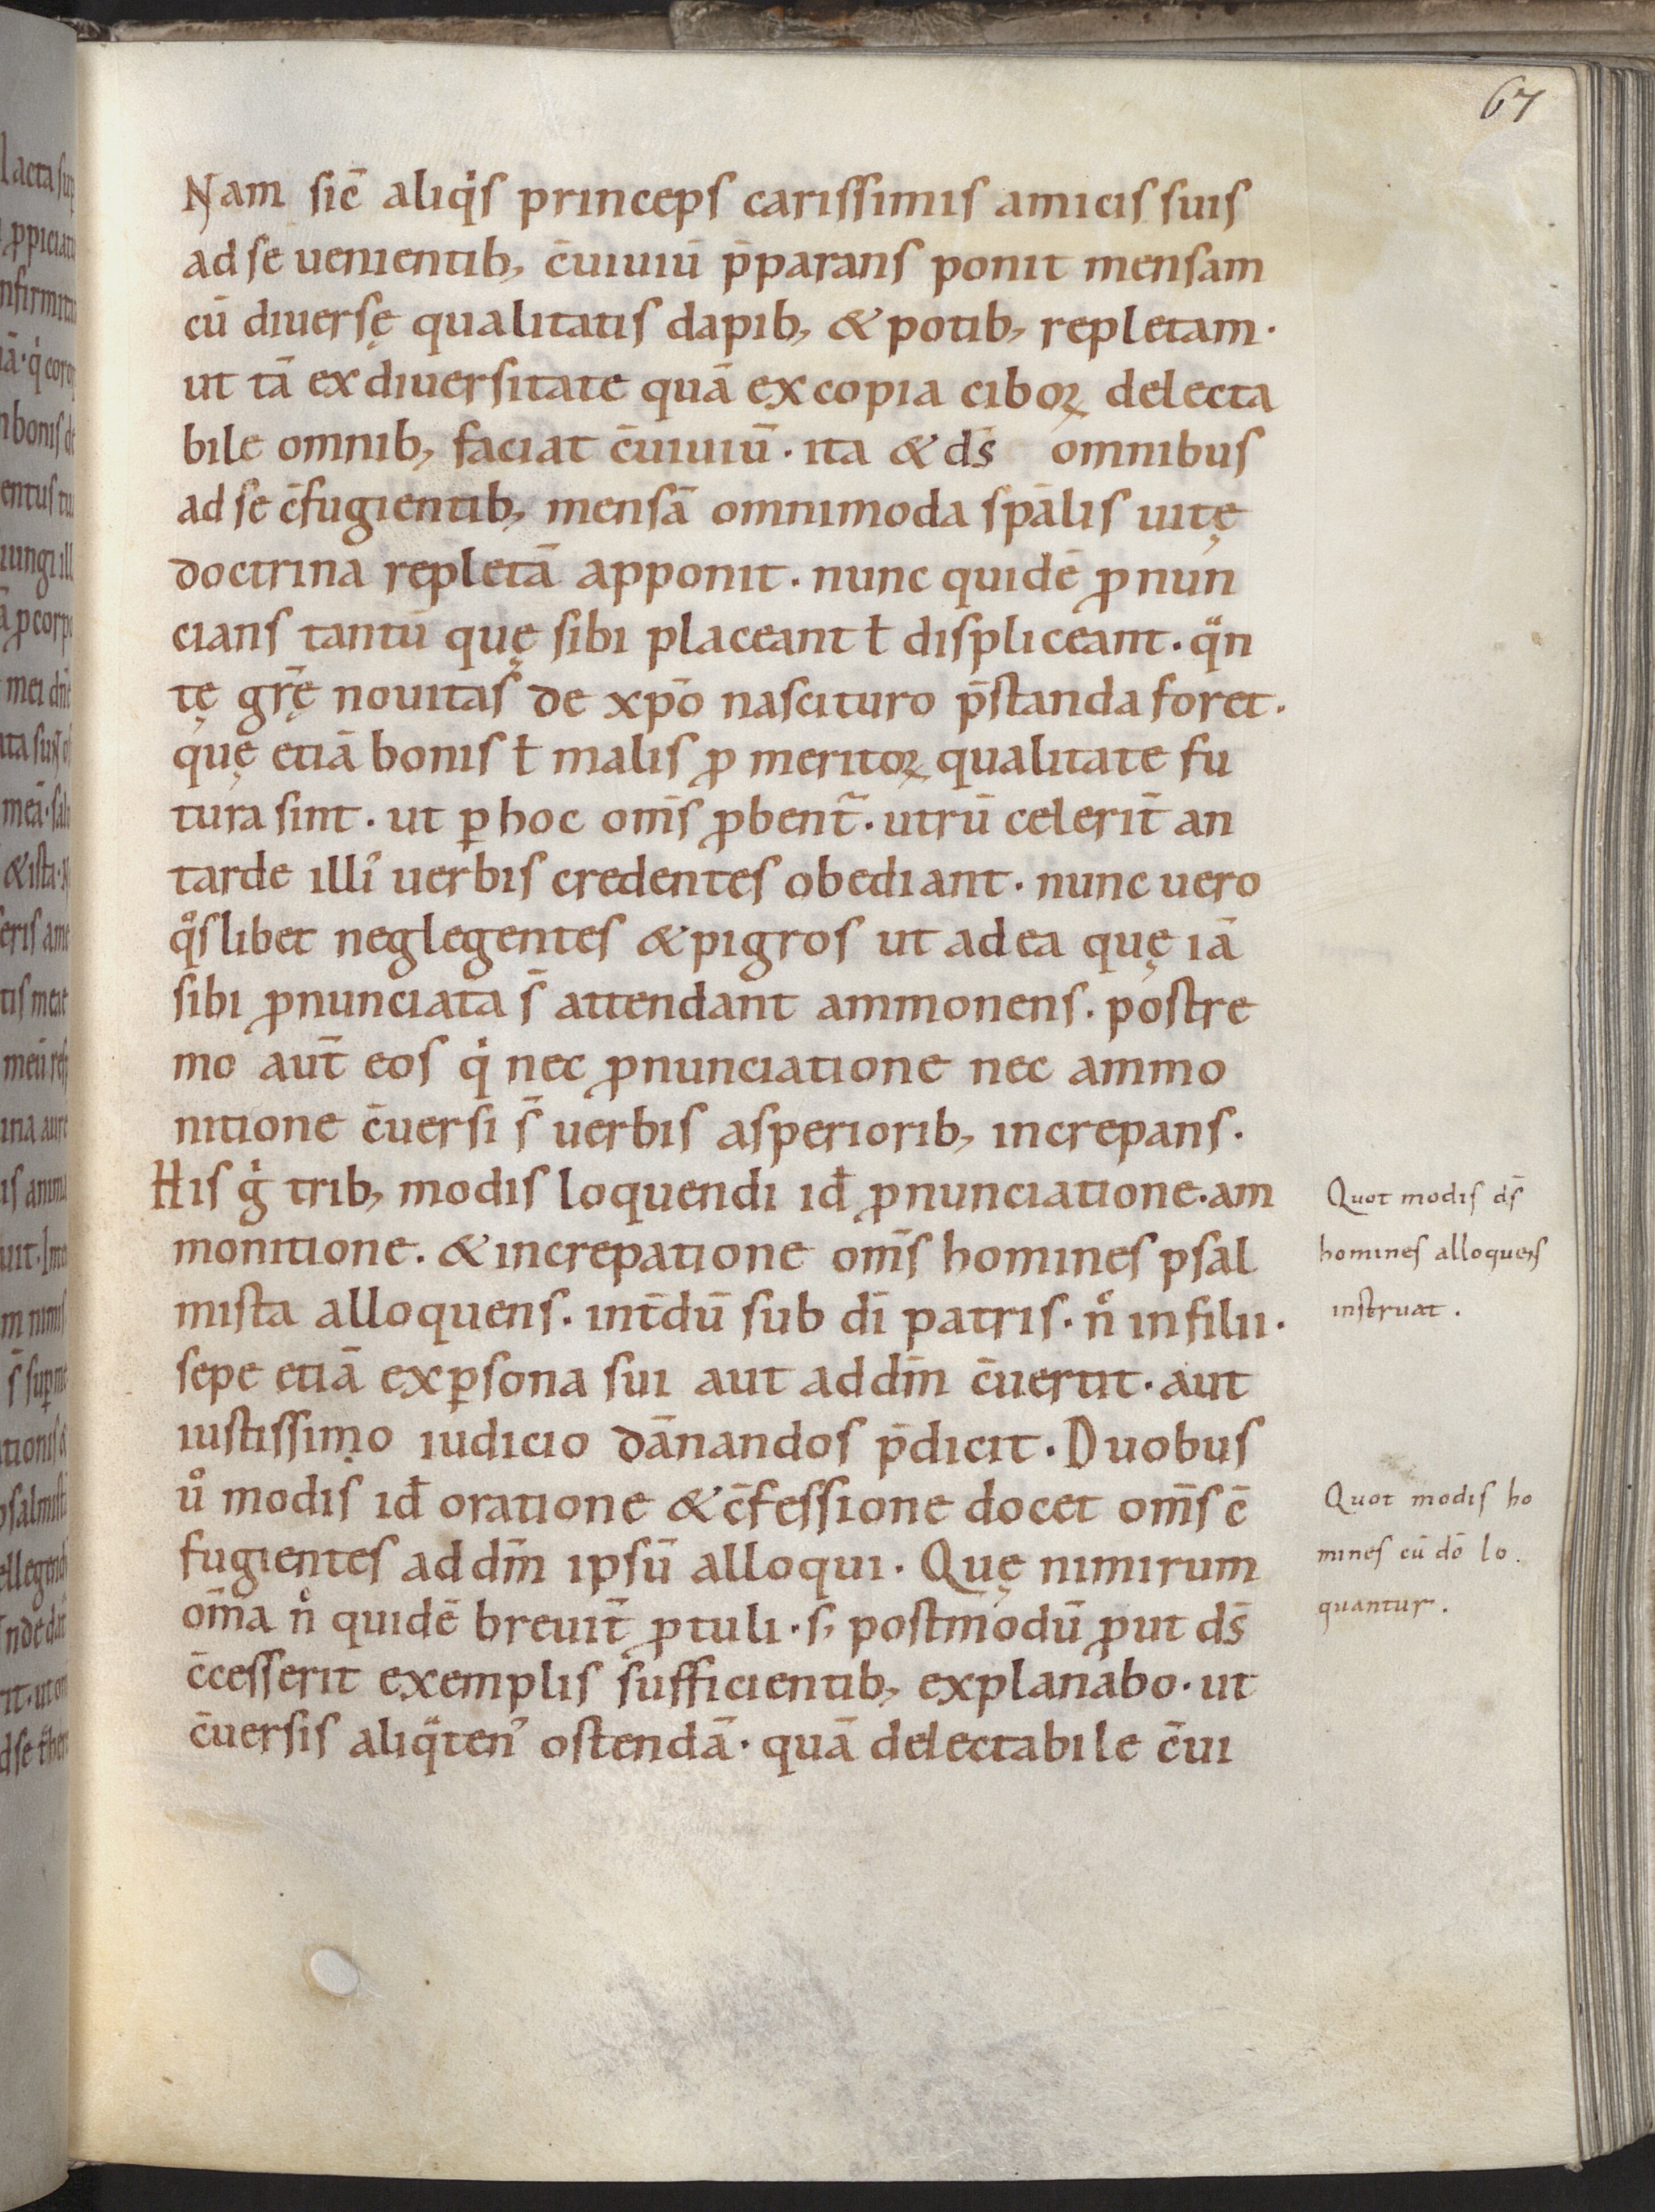 67
Nam sic̄ aliq̇s princeps carissimis amicis suis
ad se uenientib; c̄uiuiū p̄parans ponit mensam
cū diuersę qualitatis dapib; & potib; repletam·
ut tā ex diuersitate quā ex copia ciboꝝ delecta
bile omnib; faciat c̄uiuiū· ita & ds̄ omnibus
ad se c̄fugientib; mensā omnimoda spālis uitę
doctrina repletā apponit· nunc quidē ꝓnun
cians tantū quę sibi placeant ł displiceant· qᷓn
tę gr̄ę nouitas de xp̄o nascituro p̄standa foret·
quę etiā bonis ł malis ꝓ meritoꝝ qualitate fu
tura sint· ut ꝑ hoc om̄s ꝓbent᷑· utrū celerit̄ an
tarde illi᷒ uerbis credentes obediant· nunc uero
qͦslibet neglegentes & pigros ut ad ea quę iā
sibi ꝓnunciata s̄ attendant ammonens· postre
mo aut̄ eos q̇ nec ꝓnunciatione nec ammo
nitione c̄uersi s̄ uerbis asperiorib; increpans·
His g̍ trib; modis loquendi id̄ ꝓnunciatione· am
monitione· & increpatione om̄s homines psal
mista alloquens· int̄dū sub dī patris· n̊ in filii·
sepe etiā ex ꝑsona sui aut ad dm̄ c̄uertit· aut
iustissimo iudicio dānandos p̄dicit· Duobus
ů modis id̄ oratione & c̄fessione docet om̄s c̄
fugientes ad dm̄ ipsū alloqui· Quę nimirum
om̄a n̊ quidē breuit̄ ꝓtuli· s; postmodū ꝓut ds̄
c̄cesserit exemplis sufficientib; explanabo· ut
c̄uersis aliqᷓten᷒ ostendā· quā delectabile c̄ui
Quot modis ds̄
homines alloquens
instruat.
Quot modis ho
mines cū dō lo.
quantur.